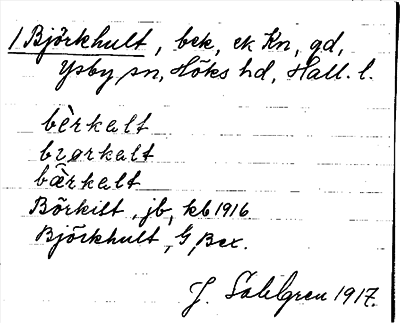 1 Björkhult, bek, ek Kn, gd,
Ysby sn, Höks hd, Hall. l.
bèrkalt
brərkalt
bæ̂rkalt
Börkilt, jb, kb 1916
Björkhult, G, Bex.
J. Sahlgren 1917.